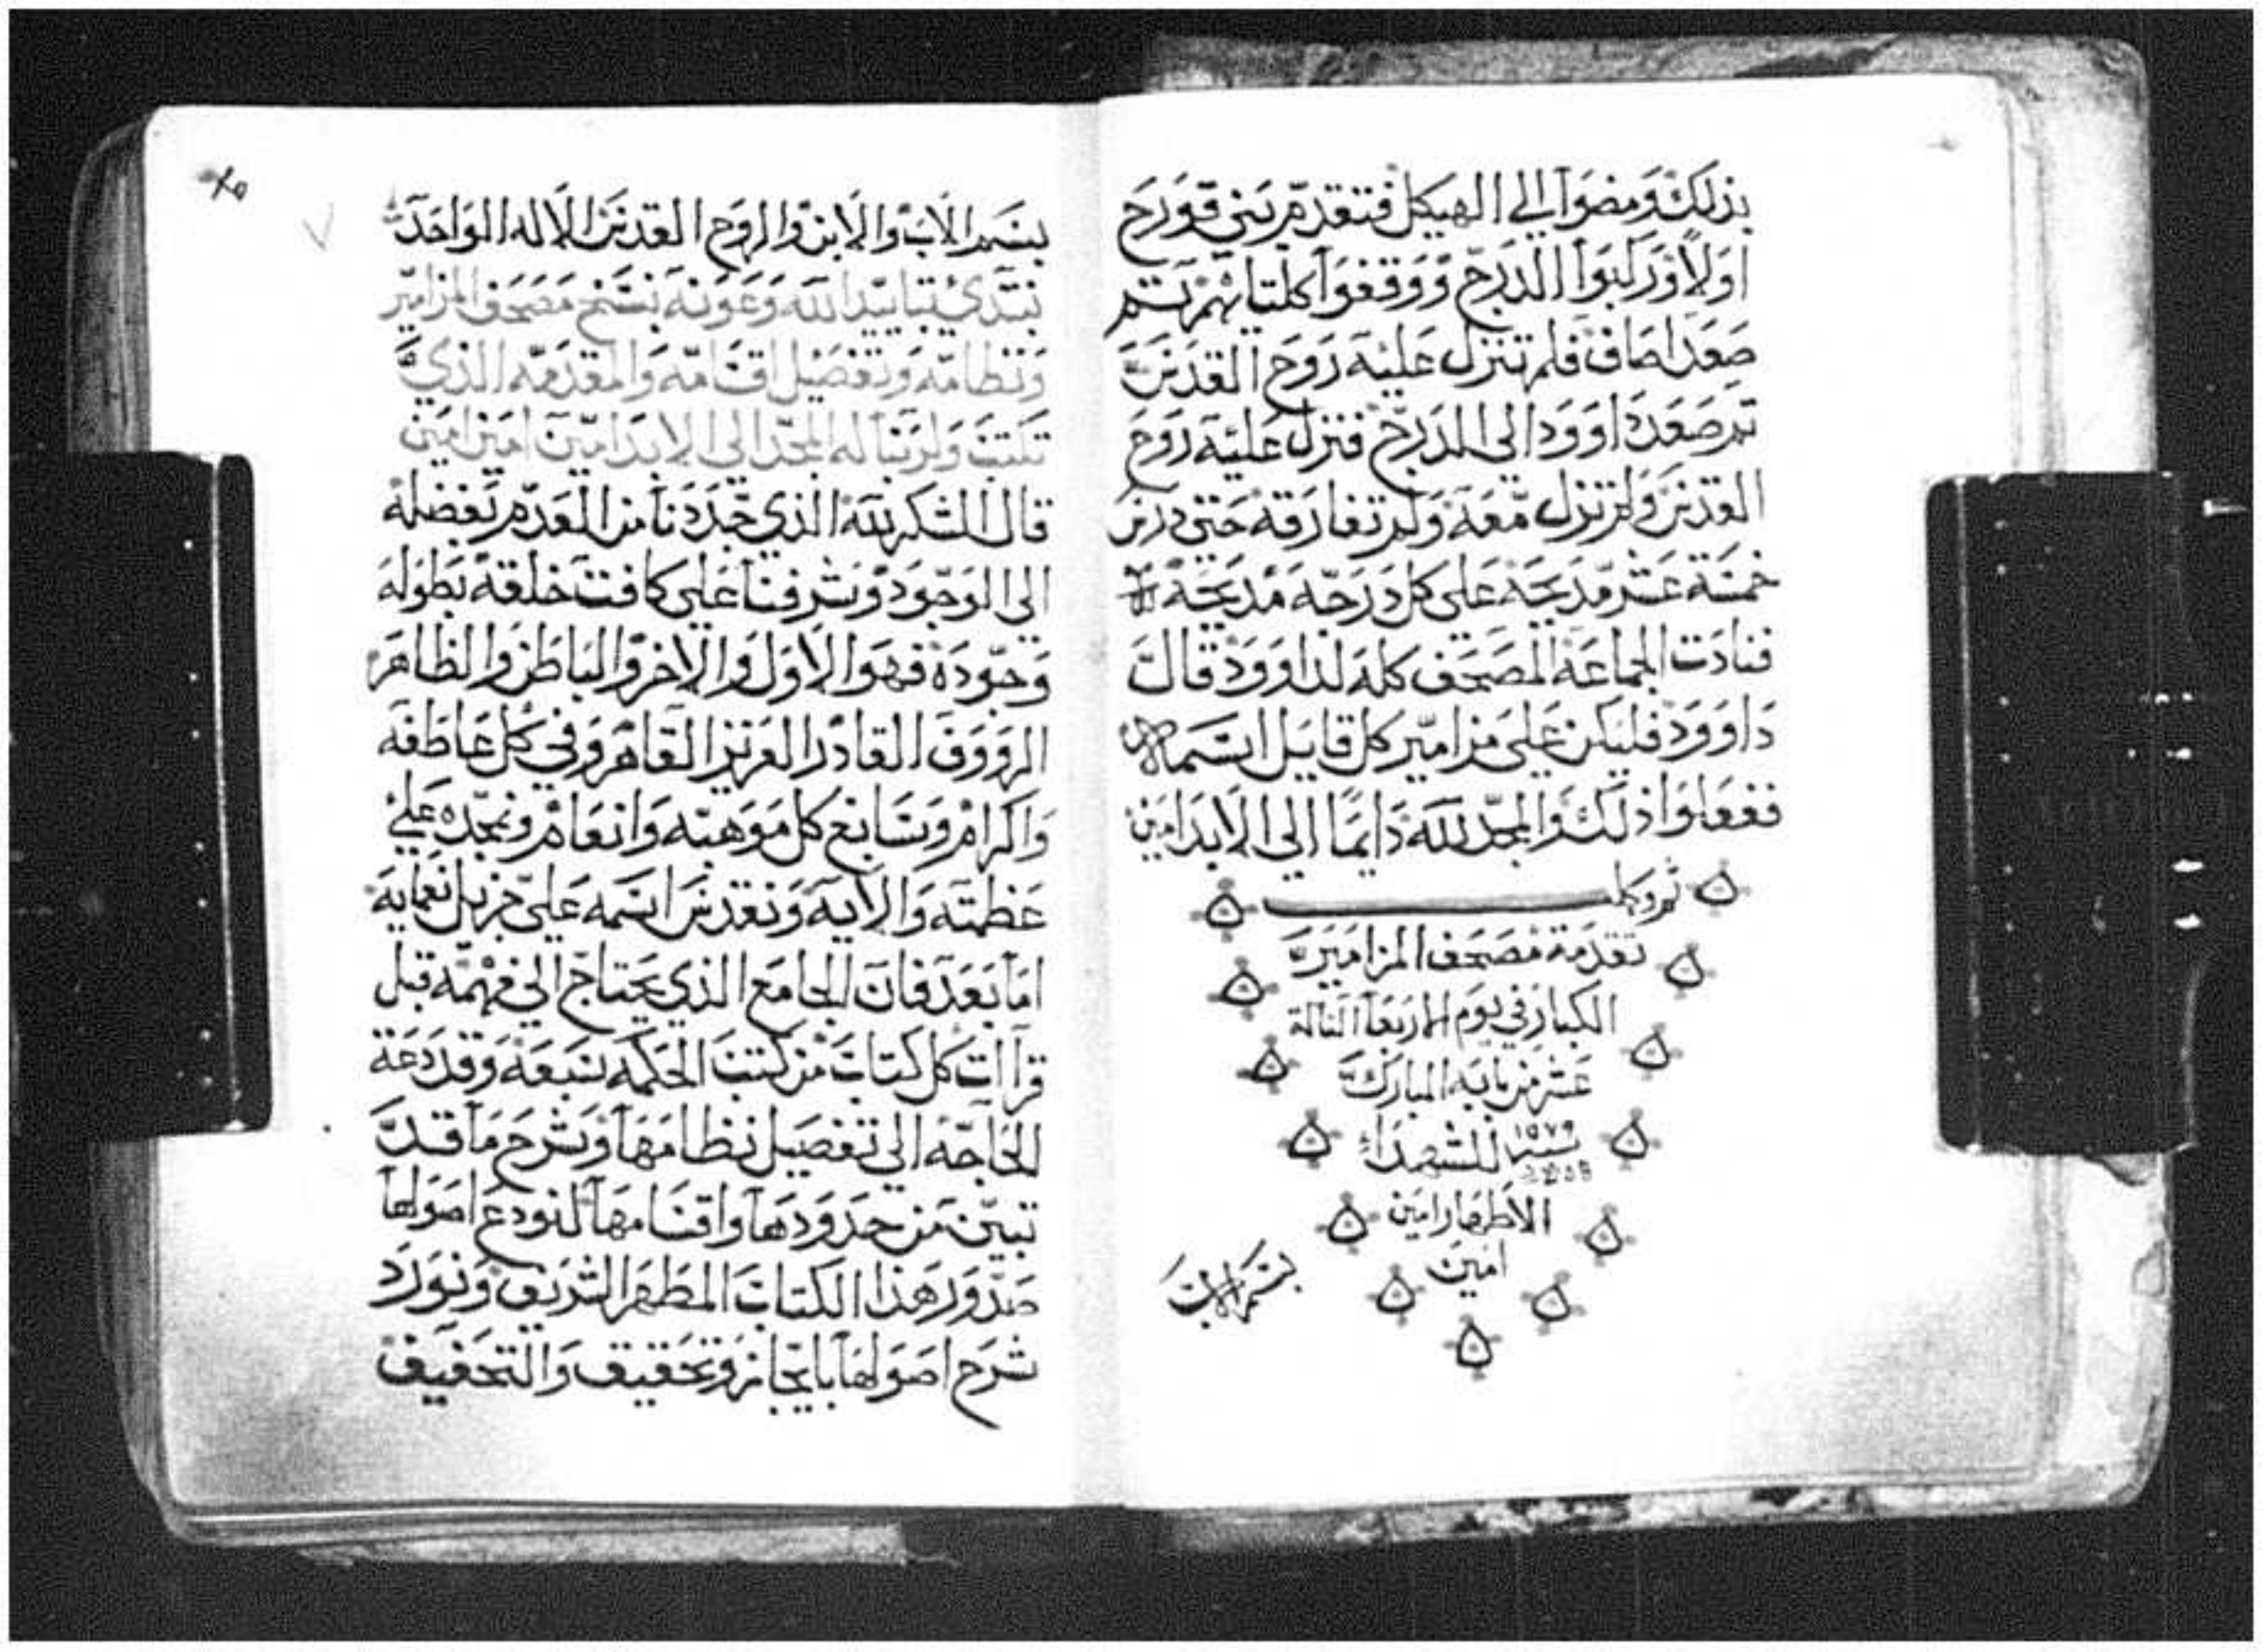 بذلك ومضوا الي الهيكل فتقدم بني قورح
اولا وركبوا الدرج ووقفوا كلتاهم تم
صعد اصاف فلم تنزل عليه روح القدس
تم صعد داوود الى الدرج فنزل عليه روح
القدس ولم تزل معه ولم تفارقه حتى درس
خمسة عشر مديحة على كل درجه مديحة
فنادت الجماعة المصحف كله لداوود قال
داوود فليكن على مزامير كل قايل اسمه
ففعلوا ذلك والمجد لله دايما الي الابد امين
تم وكمل
تقدمة مصحف المزامير
الكبار في يوم الاربعا التالة
عشر من بابه المبارك
سنة ١٥٧٩ للشهداء
الاطهار امين
امين
بسم الاب
٢٥
بسم الاب والابن والروح القدس الاله الواحد
نبتدي بتاييد الله وعونه بنسخ مصحف المزامير
ونظامه وتفصيل اقسامه والمقدمه الذي
تلتت ولربنا له المجد الى الابد امين امين امين
قال الشكر لله الذي جددنا من العدم تفضله
الى الوجود وشرفنا على كافت خلقه بطوله
وجوده فهو الاول والاخر والباطن والظاهر
الرووف القادر العزيز القاهر وفي كل عاطفه
واكرام وسابغ كل موهبه وانعام ونمجده على
عظمته والايه ونقدس اسمه على جزيل نعمايه
اما بعد فان الجامع الذي يحتاج الى فهمه قبل
قراات كل كتاب من كتب الحكمه سبعة وقد دعة
الحاجه الى تفصيل نظامها وشرح ما قد
تبين من حدودها واقسامها لنودع اصولها
صدور هذا الكتاب المطهر الشريف ونورد
شرح اصولها بايجاز وتحقيق والتخفيف